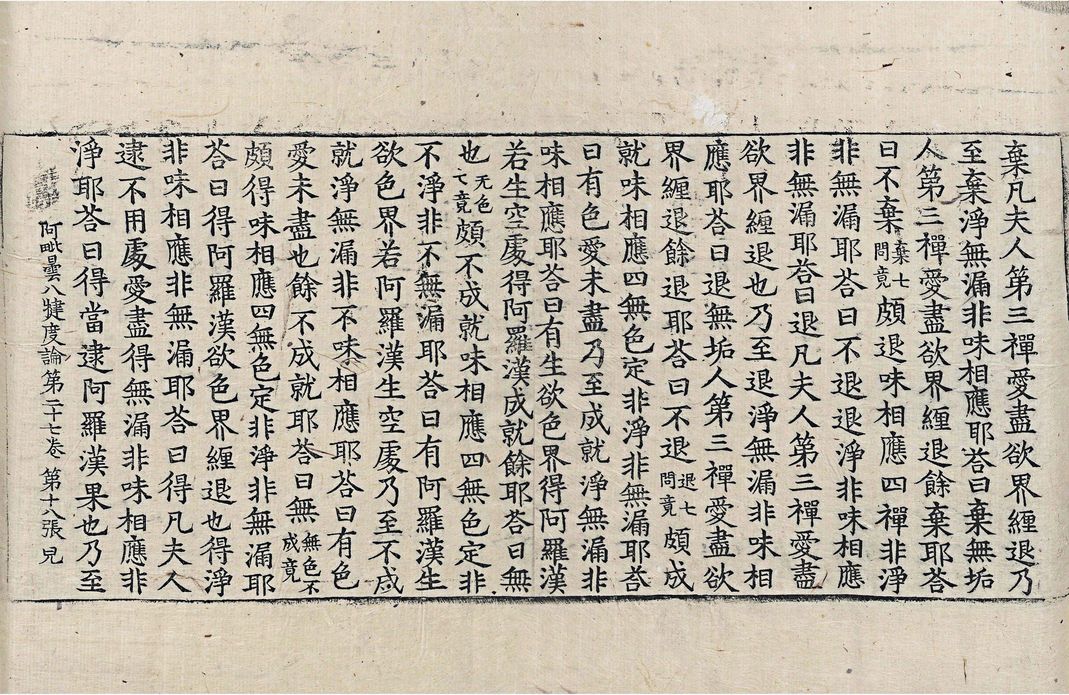 棄凡夫人第三禪愛盡欲界纏退乃
至棄淨無漏非味相應耶荅曰棄無垢
人第三禪愛盡欲界纏退餘棄耶荅
曰不棄棄七問竟頗退味相應四禪非淨
非無漏耶荅曰不退退淨非味相應
非無漏耶荅曰退凡夫人第三禪愛盡
欲界纏退也乃至退淨無漏非味相
應耶荅曰退無垢人第三禪愛盡欲
界纏退餘退耶荅曰不退退七問竟頗成
就味相應四無色定非淨非無漏耶荅
曰有色愛未盡乃至成就淨無漏非
味相應耶荅曰有生欲色界得阿羅漢
若生空處得阿羅漢成就餘耶荅曰無
也无色七竟頗不成就味相應四無色定非
不淨非不無漏耶荅曰有阿羅漢生
欲色界若阿羅漢生空處乃至不成
就淨無漏非不味相應耶荅曰有色
愛未盡也餘不成就耶荅曰無無色不成竟
頗得味相應四無色定非淨非無漏耶
荅曰得阿羅漢欲色界纏退也得淨
非味相應非無漏耶荅曰得凡夫人
逮不用處愛盡得無漏非味相應非
淨耶荅曰得當逮阿羅漢果也乃至
阿毗曇八犍度論第二十七卷 第十八張 皃